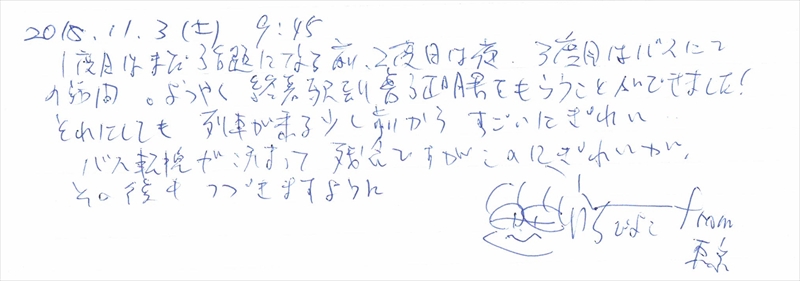 2018.11.3(土) 9:45
1度目はまだ話題になる前、2度目は夜、3度目はバスにて
の訪問。ようやく終着駅到着証明書をもらうことができました!
それにしても 列車が乗る少し前から すごいにぎわい…
バス転換が決まって 残念ですがこのにぎわいが、
その後も つづきますように
ぴよこ from
東京